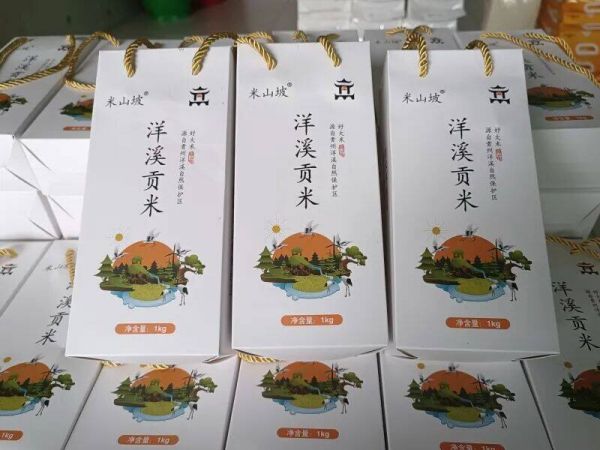 米山坡®
洋溪贡米
好大米
源自贵州洋溪自然保护区
净含量：1kg
米山坡®
洋溪贡米
好大米
源自贵州洋溪自然保护区
净含量：1kg
米山坡®
洋溪贡米
好大米
源自贵州洋溪自然保护区
净含量：1kg
米山坡
洋溪贡米
净含量：1kg
净含量：1kg
净含量：1kg
净含量：1kg